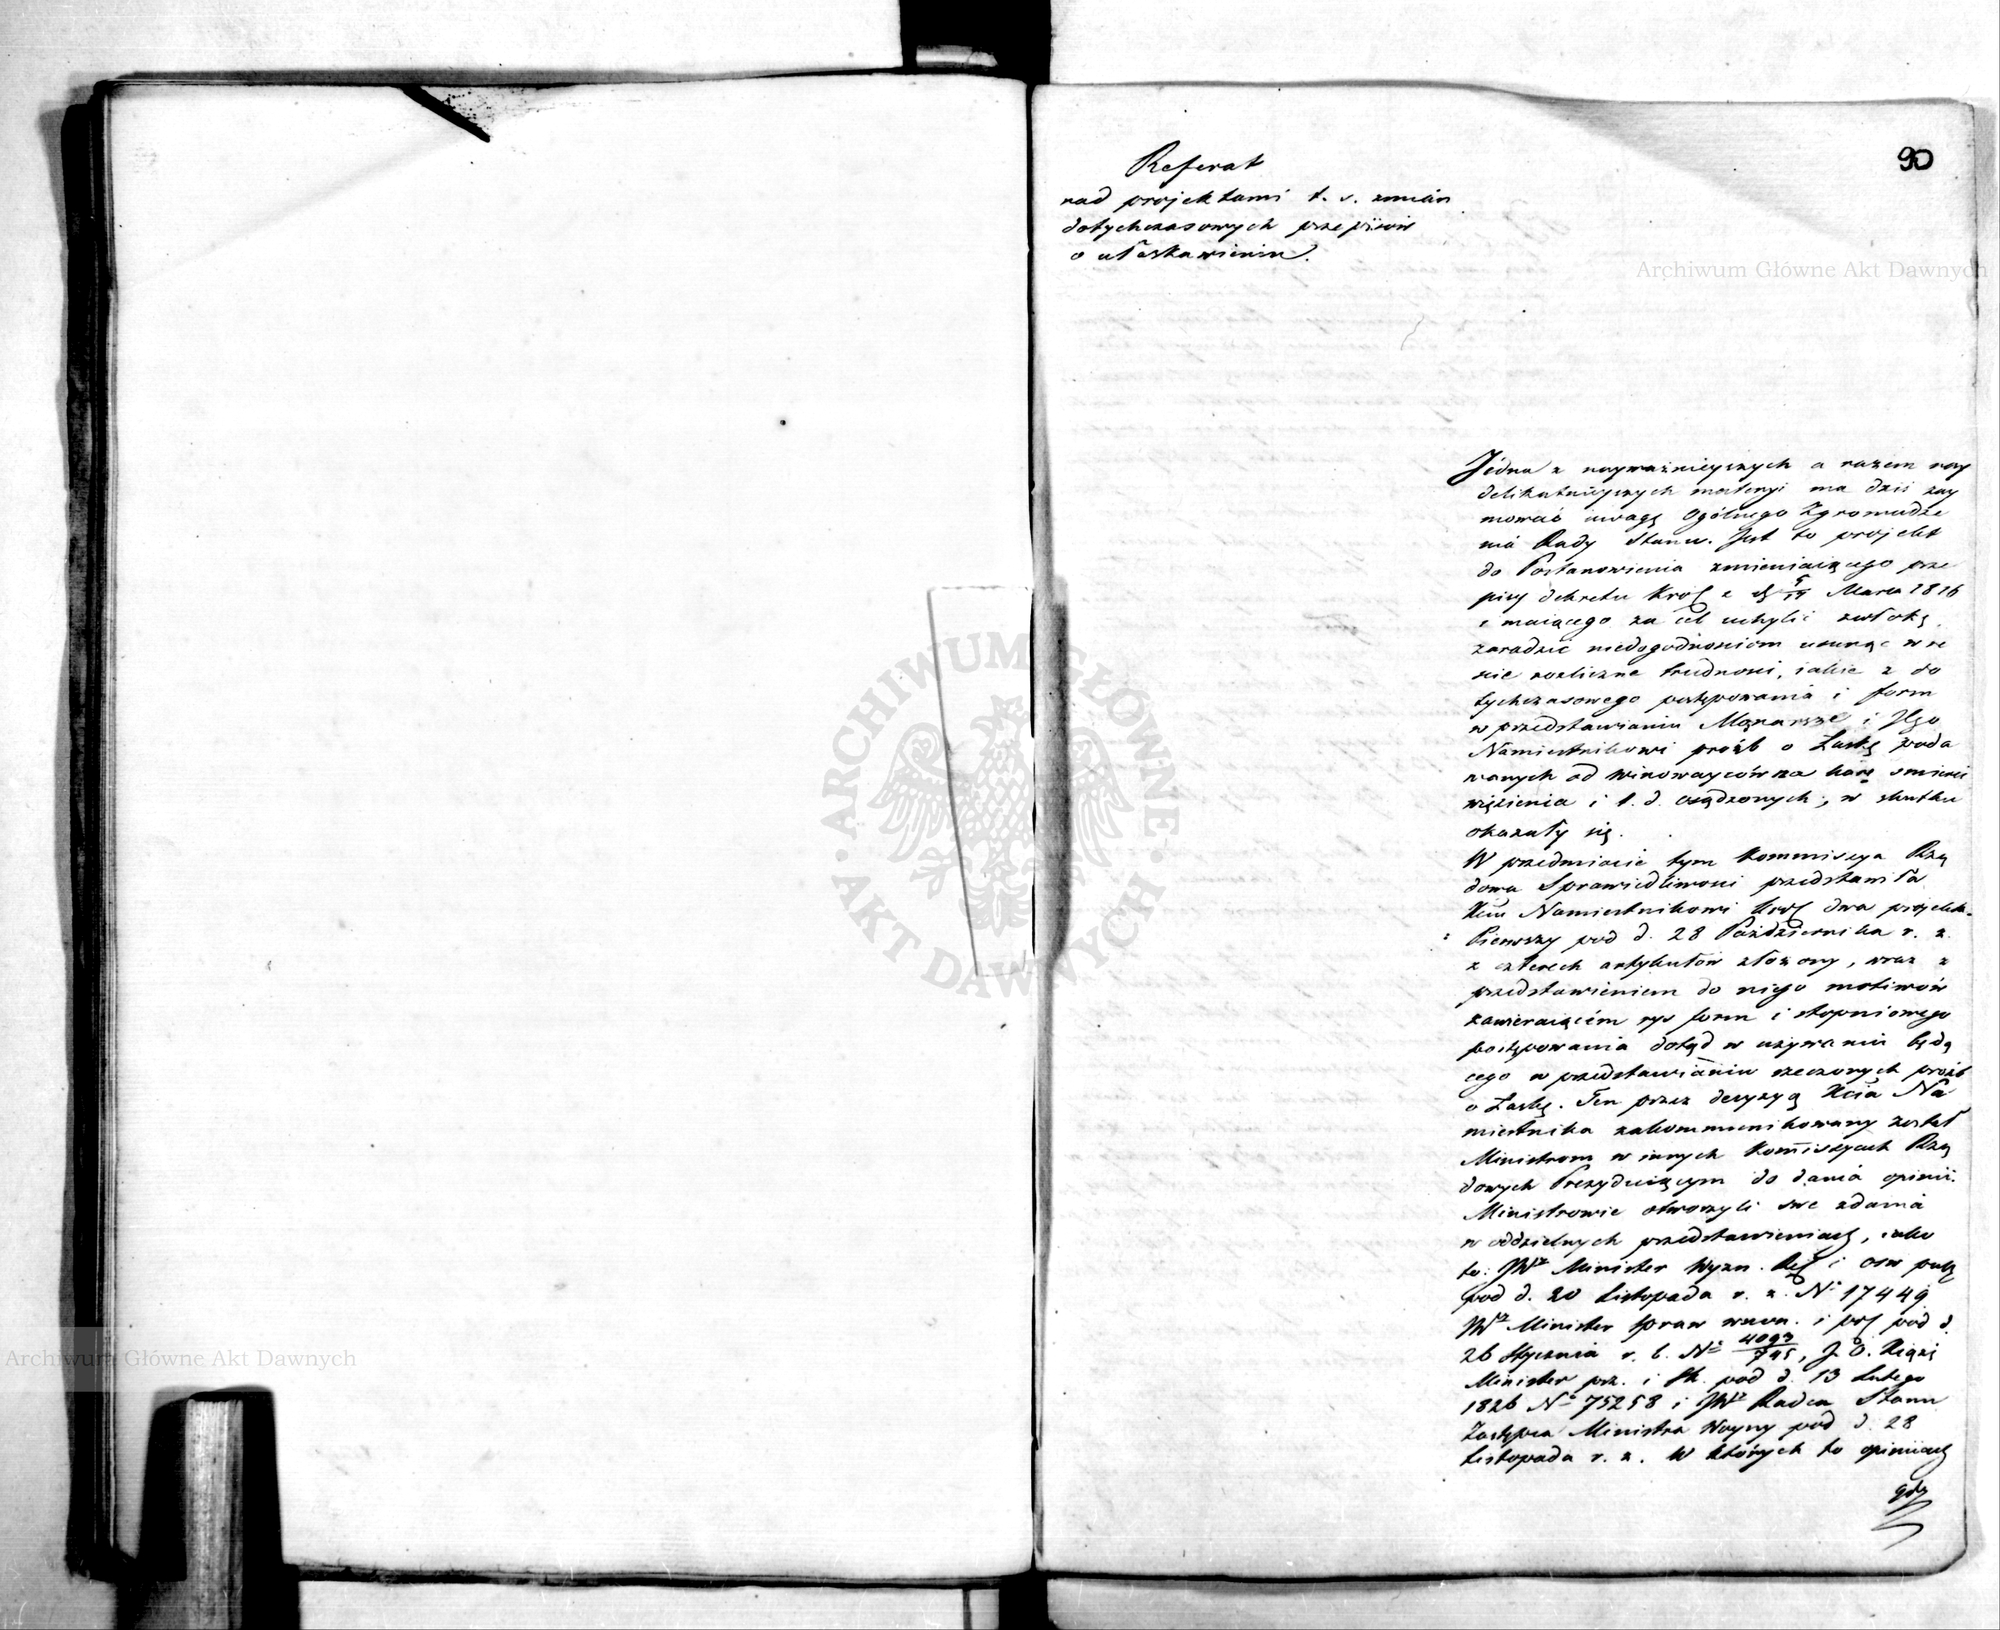 90
Referat
nad projektami t. s. zmian
dotychczasowych przepisów
o ułaskawieniu.
Jedna z nayważnieyszych a razem nay
delikatnieyszych materyi ma dziś zay
mować uwagę Ogólnego Zgromadze
nia Rady Stanu. Jest to projekt
do Postanowienia zmieniaiącego prze
pisy dekretu Król z d Marca 1816
i maiącego za cel uchylić zwłokę,
zaradzić niedogodnościom usunąć w re
ście rozliczne trudności, iakie z do
tychczasowego postępowania i form
w przedstawianiu Monarsze i Jego
Namiestnikowi proźb o Łaskę poda
wanych od winowayców na karę śmierci
więzienia i t. d. osądzonych, w skutku
okazały się.
W przedmiocie tym Kommissya Rzą
dowa Sprawiedliwości przedstawiła
Xciu Namiestnikowi Król dwa projekta.
Pierwszy pod d. 28 Października r. z.
z czterech artykułów złożony, wraz z
przedstawieniem do niego motiwów
zawieraiącém rys form i stopniowego
postępowania dotąd w używaniu będą
cego w przedstawianiu rzeczonych proźb
o Łaskę. Ten przez decyzyą Xcia Na
miestnika zakommunikowany został
Ministrom w innych Kommissyach Rzą
dowych Prezyduiącym do dania opinii.
Ministrowie otworzyli swe zdania
w oddzielnych przedstawieniach, iako
to: JW Minister Wyzn. Rel i Ośw publ
pod d. 20 Listopada r. z. N 17449
JW Minister Spraw wewn. i pol pod d.
26 Stycznia r. b. N 4093/745, J. O. Xiążę
Minister prz. i sk. pod d. 13 Lutego
1826 N 75258 i JW Radca Stanu
Zastępca Ministra Woyny pod d. 28
Listopada r. z. W których to opiniach
gdy
Archiwum Główne Akt Dawnych
Archiwum Główne Akt Dawnych
ARCHIWUM GŁÓWNE
AKT DAWNYCH